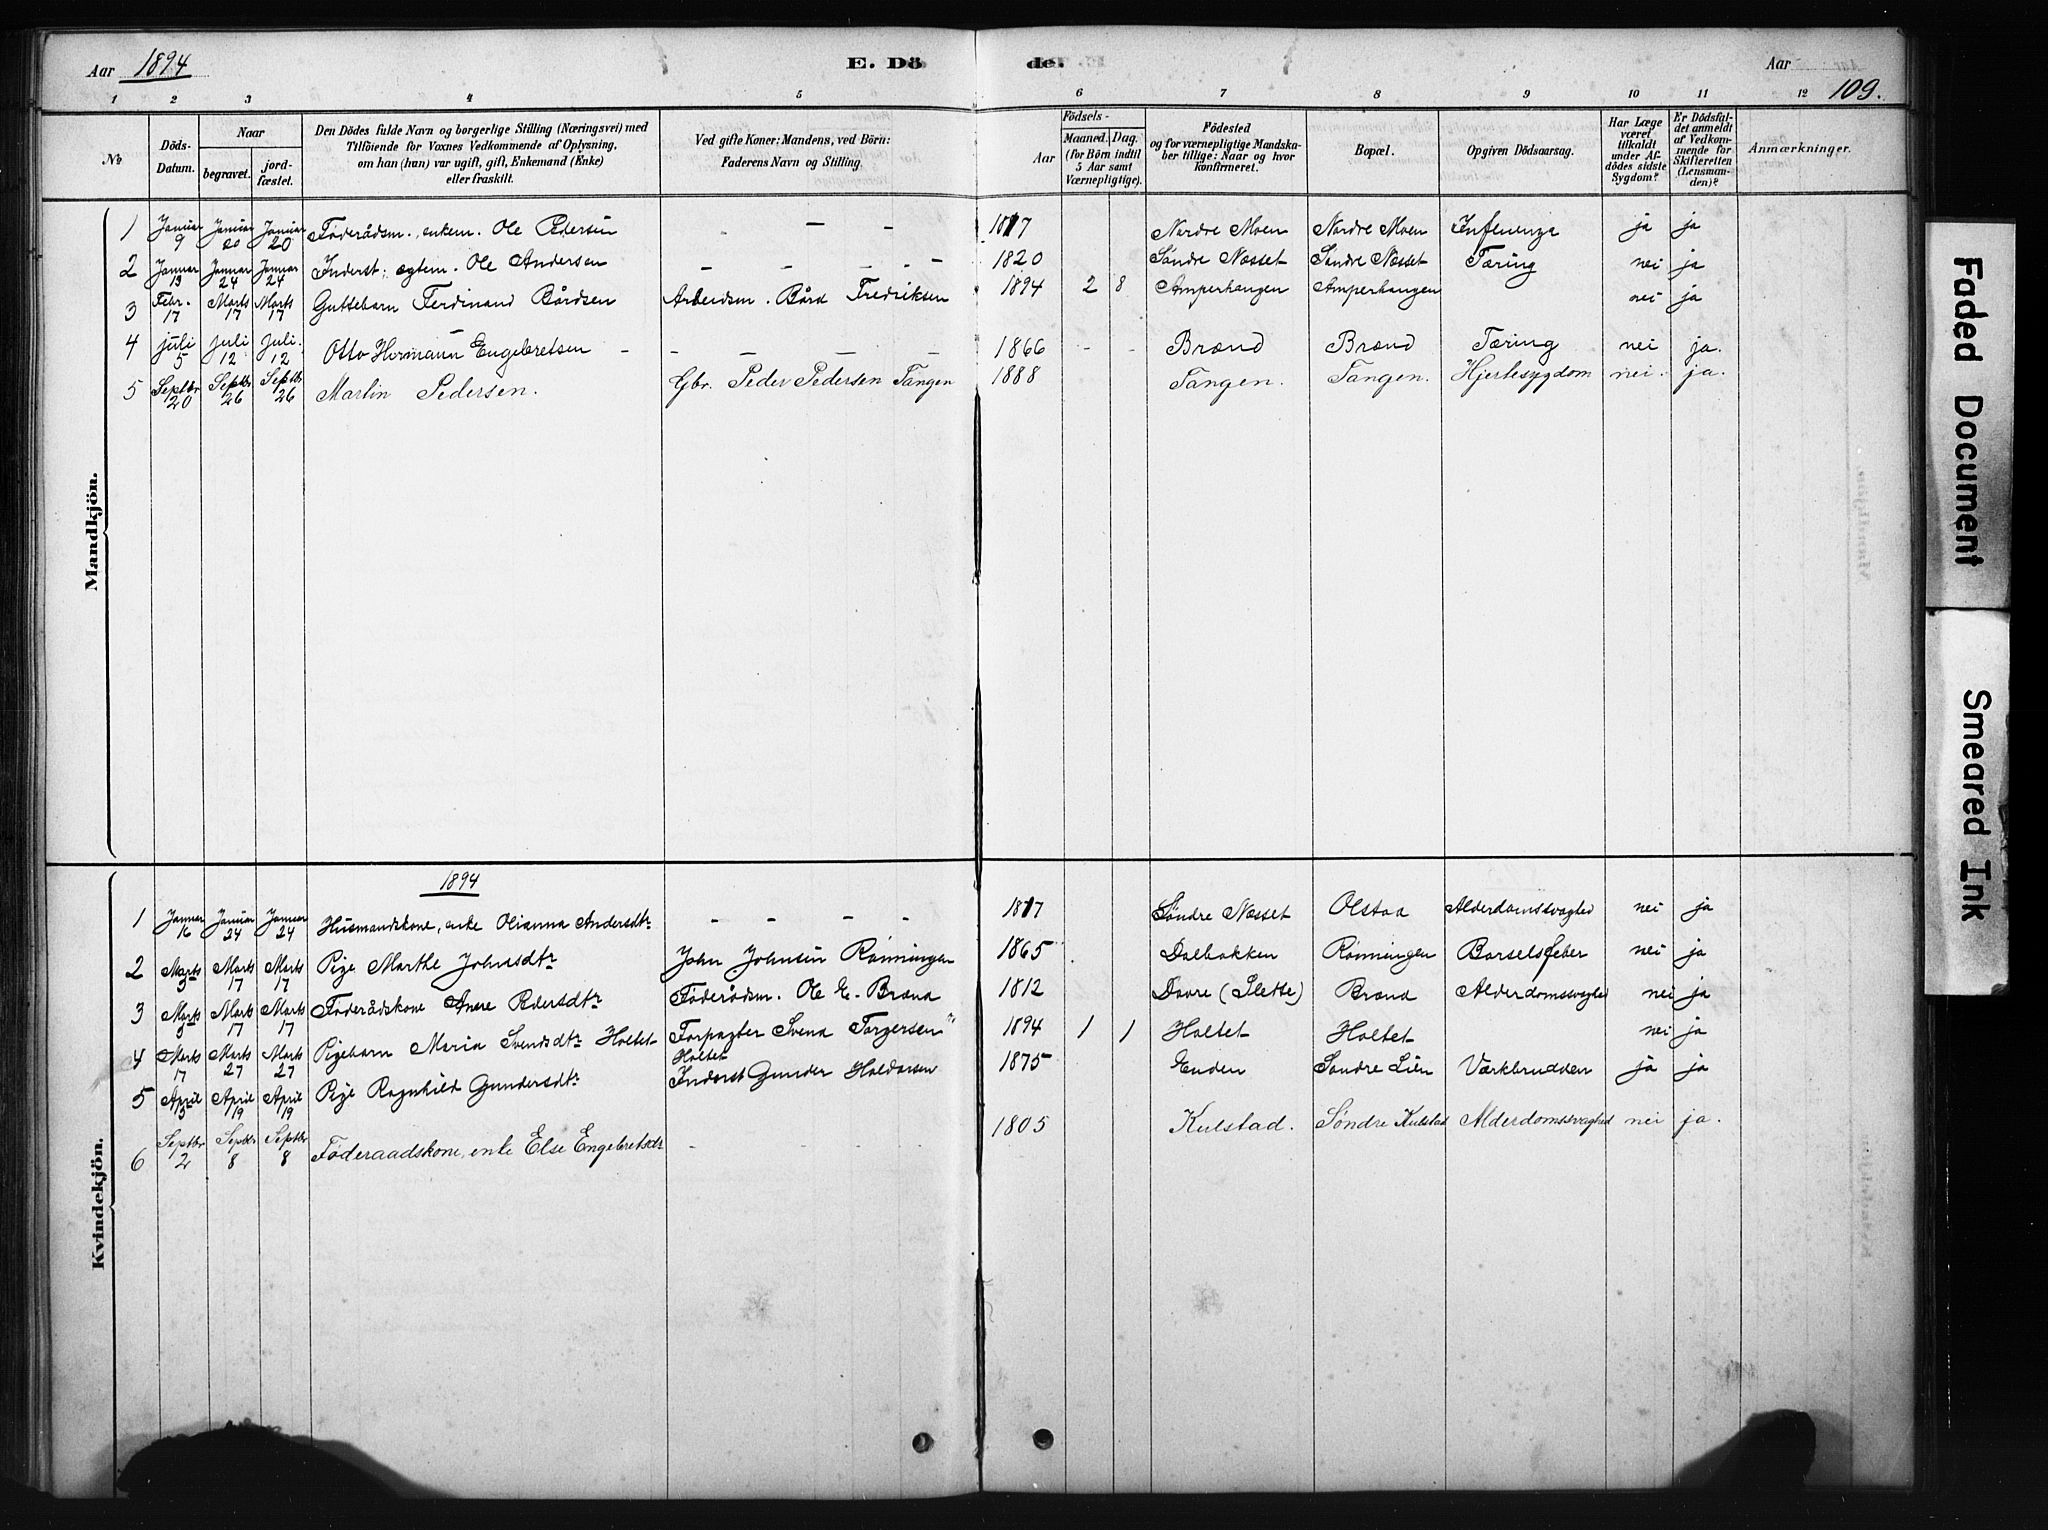 Aar 1894 E. Dö de. Aar 109.
1 2 3 4 5 6 7 8 9 10 11 12
No
Döds-Datum.
Naar
begravet.
jord-fæstet.
Den Dödes fulde Navn og borgerlige Stilling (Næringsvei) med
Tilföiende for Voxnes Vedkommende af Oplysning,
om han (hun) var ugift, gift, Enkemand (Enke)
eller fraskilt.
Ved gifte Koner: Mandens, ved Börn:
Faderens Navn og Stilling.
Födsels-
Aar
Maaned. Dag.
(for Börn indtil
5 Aar samt
Værnepligtige).
Födested
og for værnepligtige Mandska-
ber tillige: Naar og hvor
konfirmeret.
Bopæl.
Opgiven Dödsaarsag.
Har Læge
været
tilkaldt
under Af-
dödes sidste
Sygdom?
Er Dödsfal-
det anmeldt
af Vedkom-
mende for
Skifteretten
(Lensman-
den)?
Anmærkninger.
Mandkjön.
1 Januar 9 Januar 20 Januar 20 Föderådsm., enkem. Ole Pedersen - - - 1817 Nordre Moen Nordre Moen Influenza ja ja
2 Januar 13 Januar 24 Januar 24 Inderst; egtem. Ole Andersen - - - - - 1820 Søndre Næsset Søndre Næsset Tæring nei ja
3 Febr. 17 Marts 17 Marts 17 Guttebarn Ferdinand Bårdsen Arbeidsm. Bård Fredriksen 1894 2 8 Amperhaugen Amperhaugen nei ja
4 juli 5 juli 12 juli. 12 Otto Hermann Engebretsen - - - - - 1866 - - Brænd Brænd Tæring nei ja.
5 Septbr 20 Septbr 26 Septbr 26 Martin Pedersen. Gbr. Peder Pedersen Tangen 1888 Tangen. Tangen. Hjertesygdom nei. ja.
Kvindekjön.
1894
1 Januar 16 Januar 24 Januar 24 Husmandskone, enke Olianna Andersdtr - - - - 1817 Søndre Næsset Olstad Alderdomssvaghed nei ja
2 Marts 5 Marts 17 Marts 17 Pige Marthe Johnsdtr John Johnsen Rønningen 1865 Dalbakken Rønningen Barselsfeber nei ja
3 Marts Marts 17 Marts 17 Föderådskone Anne Pedersdtr Föderådsm. Ole E. Brænd 1812 Dovre (Slette) Brænd Alderdomssvaghed nei ja
4 Marts 17 Marts 27 Marts 27 Pigebarn Maria Svendsdtr Holtet Forpagter Svend Torgersen Holtet 1894 1 1 Holtet Holtet nei ja
5 April 5 April 19 April 19 Pige Ragnhild Gundersdtr Inderst Gunder Haldorsen 1875 Enden Søndre Lien Værkbrudden ja ja
6 Septbr 2 Septbr 8 Septbr 8 Föderaadskone, enke Else Engebretsdtr - - - - 1805 Kulstad. Søndre Kulstad Alderdomssvaghed nei ja.
Faded Document
Smeared Ink